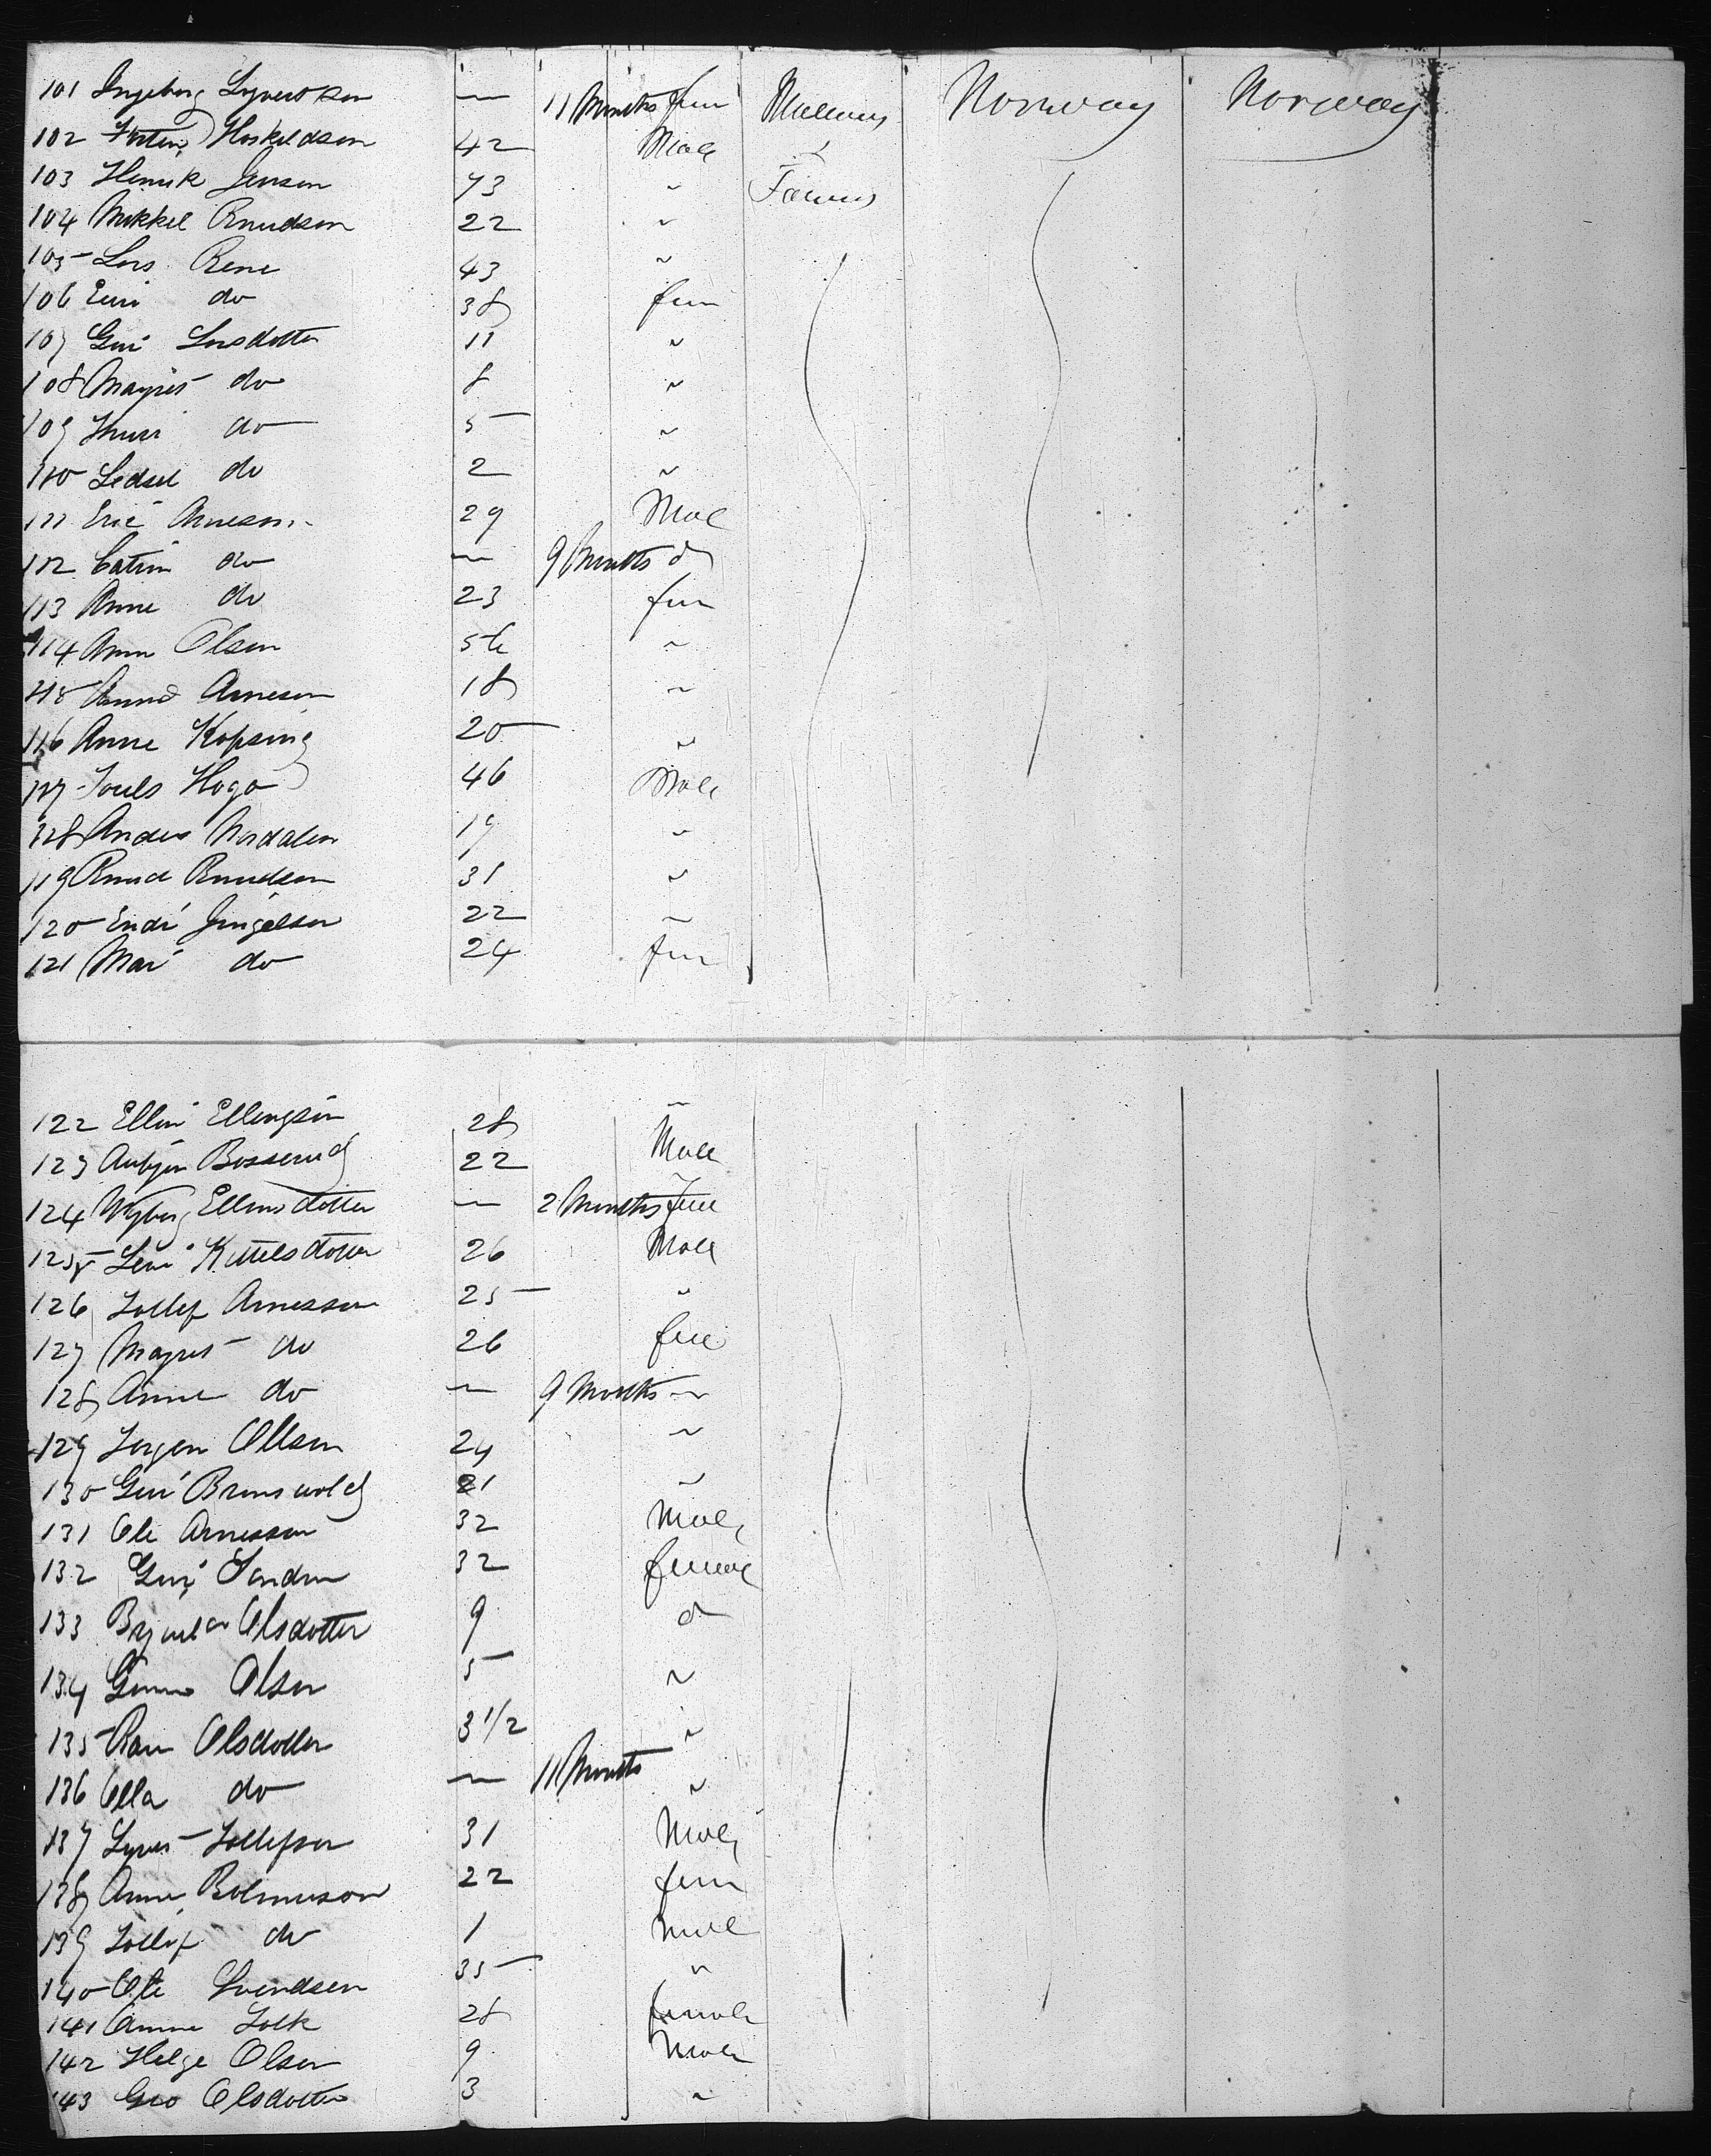 101 Ingeborg Syverson — 11 Months fem Norway Norway
102 Hoskeldson 42 Male
103 Henrik Jenson 73 " Farmer
104 Mikkel Knudson 22 "
105 Lars Rene 43 "
106 do 38 fem
107 Guri Larsdotter 11 "
108 Magrit do 8 "
109 do 5 "
110 do 2 "
111 Eric Arneson 29 Mal
112 Catrin do — 9 Months do
113 Anne do 23 fem
114 Ann Olsen 56 "
115 Arneson 18 "
116 Anne Kopsing 20 "
117 Hogo 46 Male
118 Andes Nordalen 19 "
119 Knud Knudsen 31 "
120 Endri 22 "
121 Mari do 24 fem
122 Ellin Ellingsin 28 "
123 Bosserud 22 Male
124 Ellinsdotter — 2 Months fem
125 Kittelsdotter 26 Male
126 Tollef Arnesson 25 "
127 Magret do 26 fem
128 Anne do — 9 Months "
129 Jorgen Ollsen 24 "
130 Guri Brunswold 21 "
131 Ole Arnesson 32 Male
132 Guri 32 female
133 Olsdotter 9 do
134 Olsen 5 "
135 Olsdotter 3 1/2 "
136 Olla do — 11 Months "
137 Tollefson 31 Male
138 Anne 22 fem
139 Tollef do 1 Male
140 Ole Svendsen 35 "
141 Anne 28 female
142 Helge Olsen 9 Male
143 Gro Olsdotter 3 "